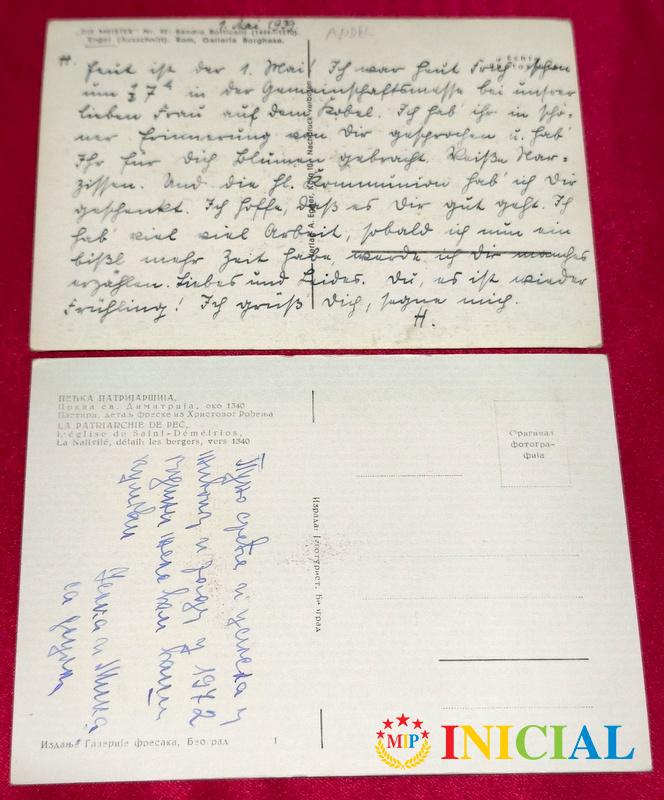 1. Mai 1939.
"DIE MEISTER" Nr. Sandro Botticelli
Engel (Ausschnitt). Rom, Galleria Borghese.
ANĐEL
Echte
H. Heut ist der 1. Mai! Ich war heut Früh schon
um ½ 7 h in der Gemeinschaftsmesse bei unsrer
lieben Frau auf dem Kobel. Ich hab' ihr in schö-
ner Erinnerung von Dir gesprochen u. hab'
Ihr für Dich Blumen gebracht. Weiße Nar-
zissen. Und die hl. Kommunion hab' ich Dir
geschenkt. Ich hoffe, daß es Dir gut geht. Ich
hab' viel viel Arbeit, sobald ich nun ein
bißl mehr Zeit habe, werde ich Dir manches
erzählen. Liebes und Leides. Du, es ist wieder
Frühling! Ich grüß Dich, segne mich.
H.
Verlag A. Nachdruck verboten
ПЕЋКА ПАТРИЈАРШИЈА,
Црква св. Димитрија, око 1340
Пастири, детаљ фреске из Христовог Рођења
LA PATRIARCHIE DE PEĆ,
L'église de Saint-Démétrios,
La Nativité, détail: les bergers, vers 1340
Оригинал
фотогра-
фија
Пуно среће и успеха у
животу и раду у 1972
години жели вам ваши
кумови
Жика
са децом
Израда: Фототурист, Београд
Издање Галерије фресака, Београд
1
MIP INICIAL